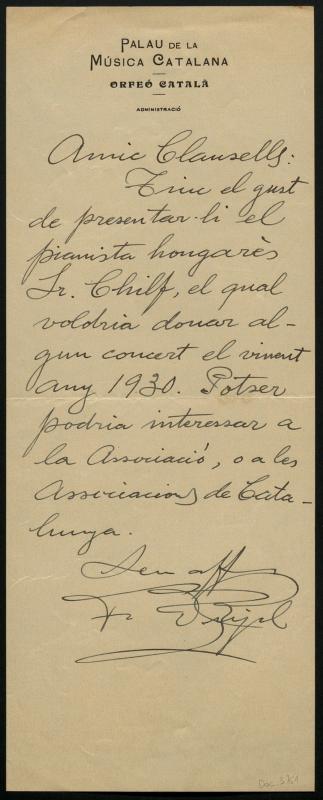 PALAU DE LA
MÚSICA CATALANA
ORFEÓ CATALÀ
ADMINISTRACIÓ
Amic Clausells:
Tinc el gust
de presentar-li el
pianista hongarès
Sr. Chilf, el qual
voldria donar al-
gun concert el vinent
any 1930. Potser
podria interessar a
la Associació, o a les
Associacions de Cata-
lunya.
Seu aff
F. Pujol
Doc. 3761